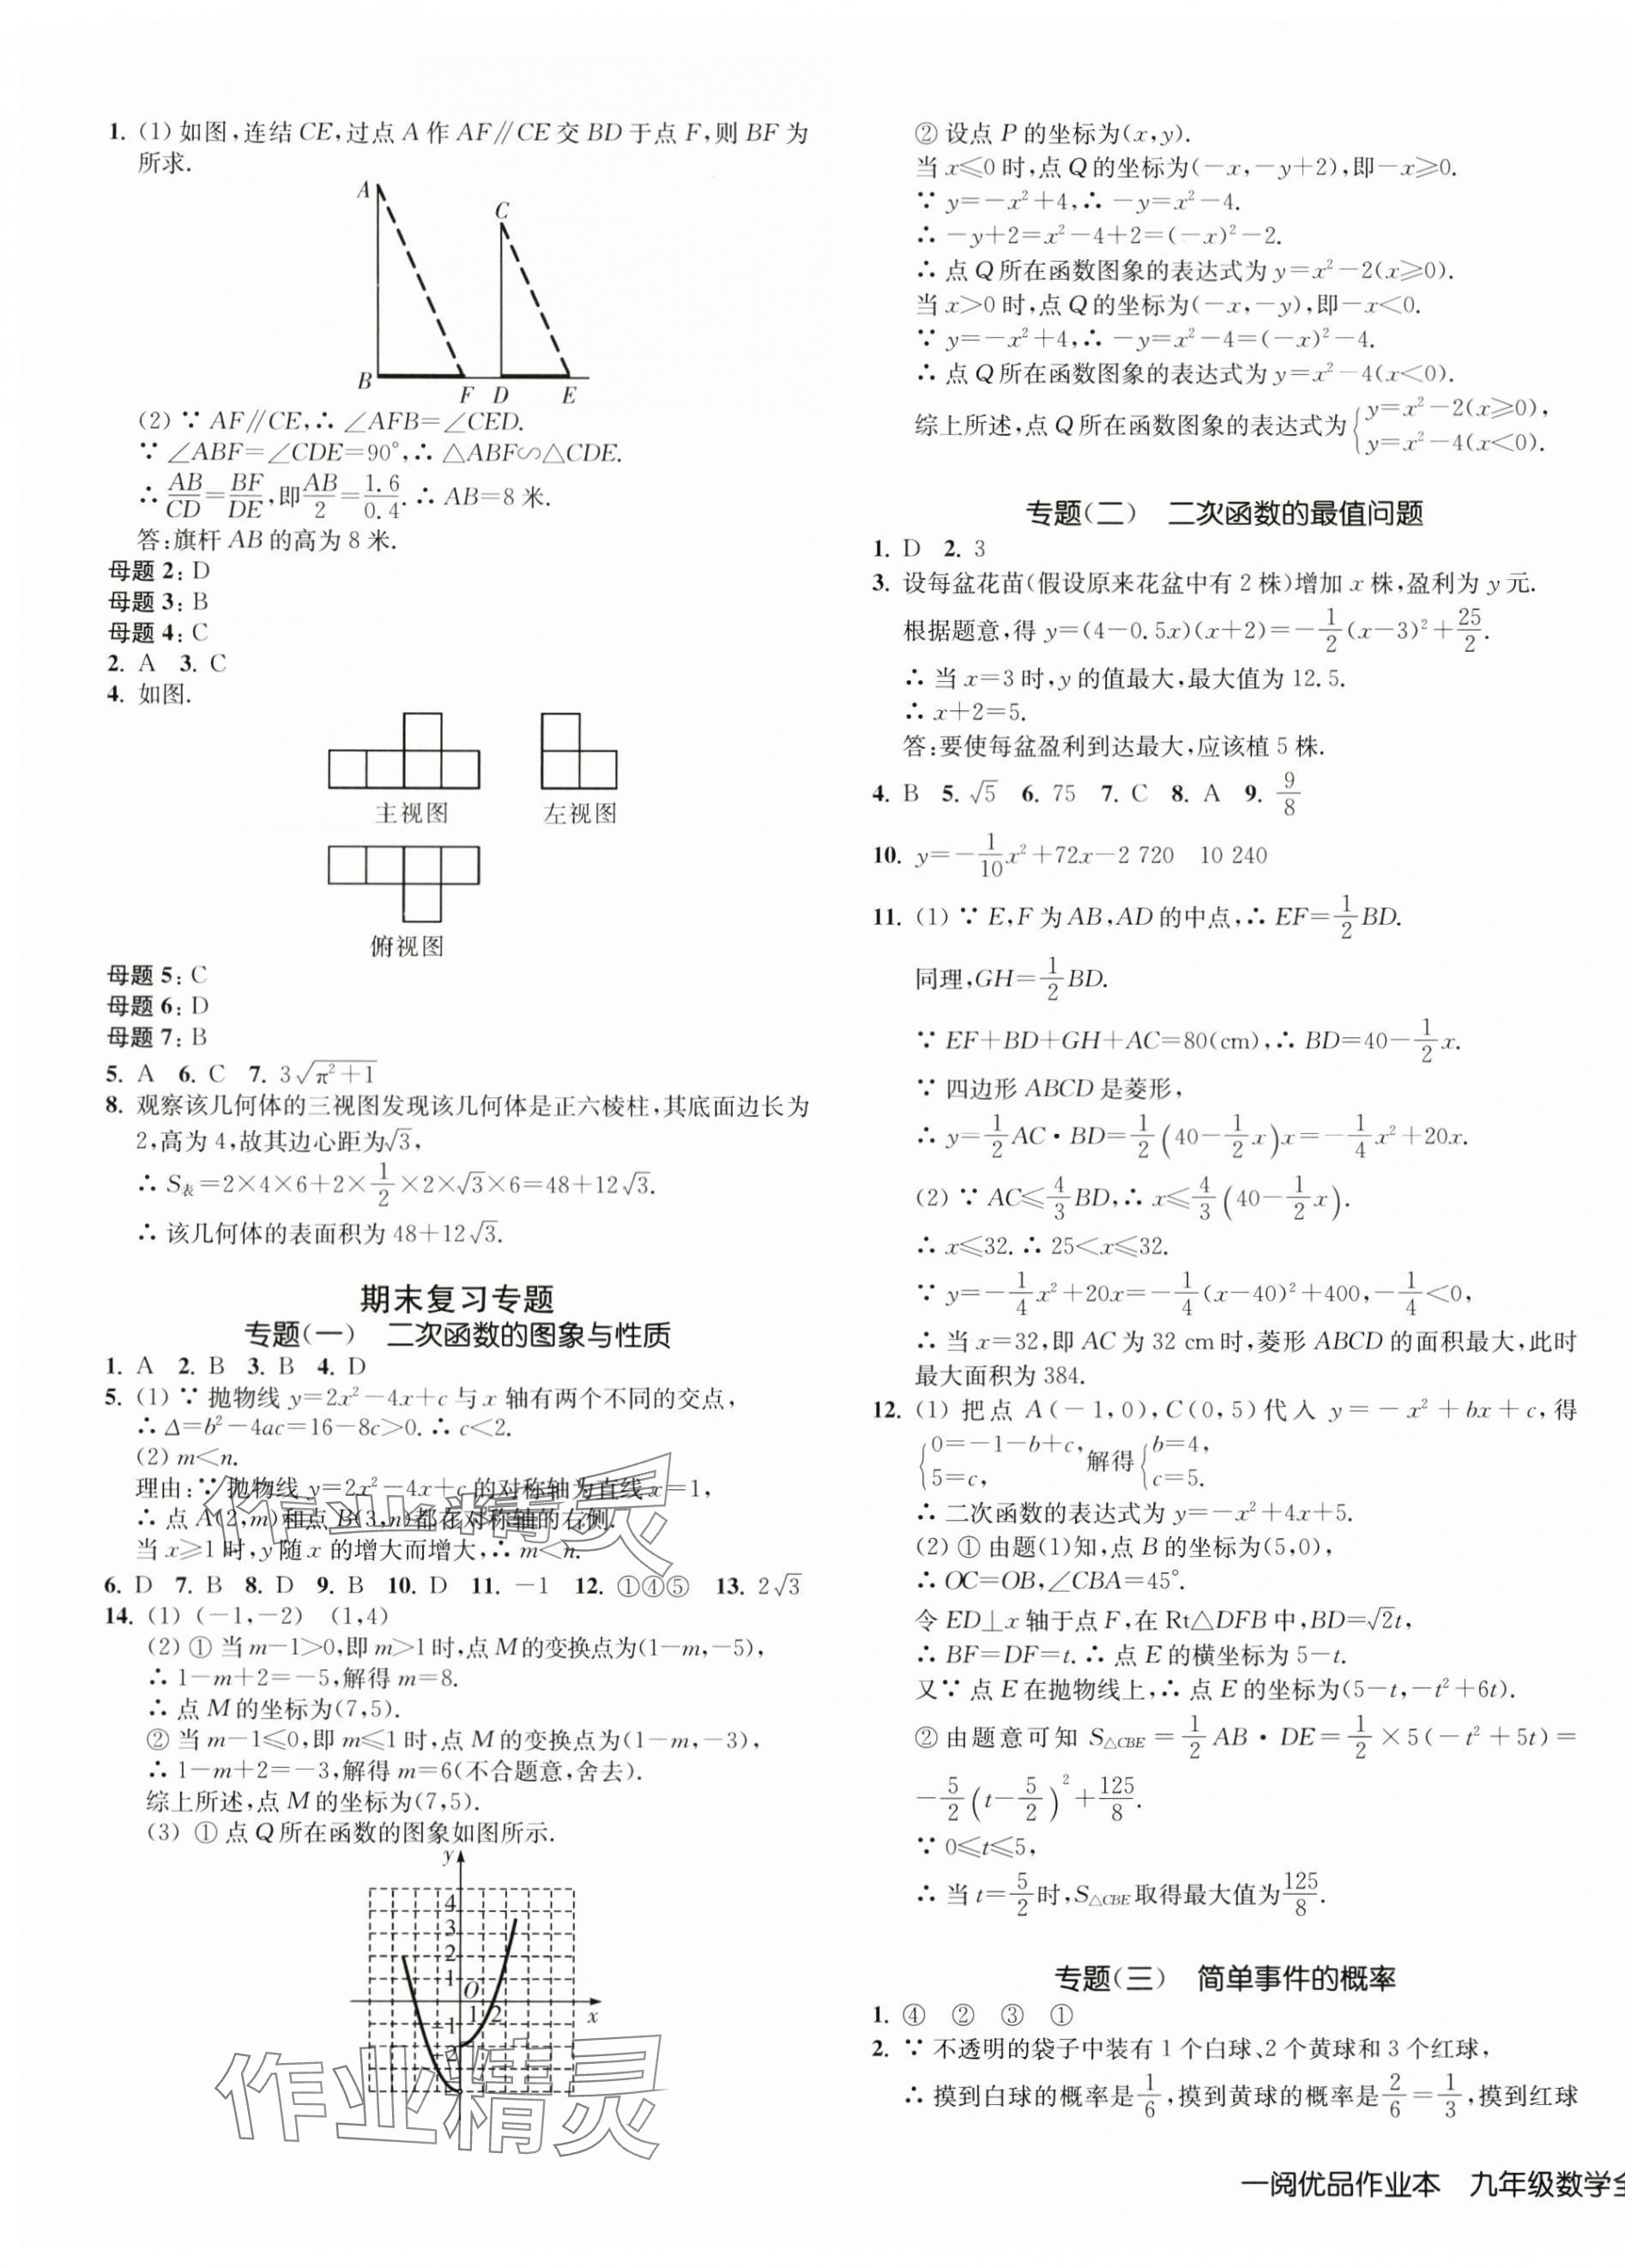 1. (1) 如图,连结 CE,过点 A 作 AF∥CE 交 BD 于点 F,则 BF 为
所求.
A
C
B
F D E
(2) ∵ AF∥CE,∴ ∠AFB=∠CED.
∵ ∠ABF=∠CDE=90°,∴ △ABF∽△CDE.
∴ AB/CD=BF/DE,即AB/2=1.6/0.4.∴ AB=8 米.
答:旗杆 AB 的高为 8 米.
母题 2: D
母题 3: B
母题 4: C
2. A 3. C
4. 如图.
主视图 左视图
俯视图
母题 5: C
母题 6: D
母题 7: B
5. A 6. C 7. 3√(π²+1)
8. 观察该几何体的三视图发现该几何体是正六棱柱,其底面边长为
2,高为 4,故其边心距为√3,
∴ S表=2×4×6+2×1/2×2×√3×6=48+12√3.
∴ 该几何体的表面积为 48+12√3.
期末复习专题
专题(一) 二次函数的图象与性质
1. A 2. B 3. B 4. D
5. (1) ∵ 抛物线 y=2x²-4x+c 与 x 轴有两个不同的交点,
∴ Δ=b²-4ac=16-8c>0.∴ c<2.
(2) m<n.
理由:∵ 抛物线 y=2x²-4x+c 的对称轴为直线 x=1,
∴ 点 A(2,m)和点 B(3,n)都在对称轴的右侧.
当 x≥1 时,y 随 x 的增大而增大,∴ m<n.
6. D 7. B 8. D 9. B 10. D 11. -1 12. ①④⑤ 13. 2√3
14. (1) (-1,-2) (1,4)
(2) ① 当 m-1>0,即 m>1 时,点 M 的变换点为(1-m,-5),
∴ 1-m+2=-5,解得 m=8.
∴ 点 M 的坐标为(7,5).
② 当 m-1≤0,即 m≤1 时,点 M 的变换点为(1-m,-3),
∴ 1-m+2=-3,解得 m=6(不合题意,舍去).
综上所述,点 M 的坐标为(7,5).
(3) ① 点 Q 所在函数的图象如图所示.
y
4
3
2
1
O
1 2 x
-1
-2
② 设点 P 的坐标为(x,y).
当 x≤0 时,点 Q 的坐标为(-x,-y+2),即-x≥0.
∵ y=-x²+4,∴ -y=x²-4.
∴ -y+2=x²-4+2=(-x)²-2.
∴ 点 Q 所在函数图象的表达式为 y=x²-2(x≥0).
当 x>0 时,点 Q 的坐标为(-x,-y),即-x<0.
∵ y=-x²+4,∴ -y=x²-4=(-x)²-4.
∴ 点 Q 所在函数图象的表达式为 y=x²-4(x<0).
综上所述,点 Q 所在函数图象的表达式为{y=x²-2(x≥0),
y=x²-4(x<0).
专题(二) 二次函数的最值问题
1. D 2. 3
3. 设每盆花苗(假设原来花盆中有 2 株)增加 x 株,盈利为 y 元.
根据题意,得 y=(4-0.5x)(x+2)=-1/2(x-3)²+25/2.
∴ 当 x=3 时,y 的值最大,最大值为 12.5.
∴ x+2=5.
答:要使每盆盈利到达最大,应该植 5 株.
4. B 5. √5 6. 75 7. C 8. A 9. 9/8
10. y=-1/10x²+72x-2 720 10 240
11. (1) ∵ E,F 为 AB,AD 的中点,∴ EF=1/2BD.
同理,GH=1/2BD.
∵ EF+BD+GH+AC=80(cm),∴ BD=40-1/2x.
∵ 四边形 ABCD 是菱形,
∴ y=1/2AC·BD=1/2(40-1/2x)x=-1/4x²+20x.
(2) ∵ AC≤4/3BD,∴ x≤4/3(40-1/2x).
∴ x≤32.∴ 25<x≤32.
∵ y=-1/4x²+20x=-1/4(x-40)²+400,-1/4<0,
∴ 当 x=32,即 AC 为 32 cm 时,菱形 ABCD 的面积最大,此时
最大面积为 384.
12. (1) 把点 A(-1,0),C(0,5)代入 y=-x²+bx+c,得
{0=-1-b+c, 5=c, 解得{b=4, c=5.
∴ 二次函数的表达式为 y=-x²+4x+5.
(2) ① 由题(1)知,点 B 的坐标为(5,0),
∴ OC=OB,∠CBA=45°.
令 ED⊥x 轴于点 F,在 Rt△DFB 中,BD=√2t,
∴ BF=DF=t.∴ 点 E 的横坐标为 5-t.
又∵ 点 E 在抛物线上,∴ 点 E 的坐标为(5-t,-t²+6t).
② 由题意可知 S△CBE=1/2AB·DE=1/2×5(-t²+5t)=
-5/2(t-5/2)²+125/8.
∵ 0≤t≤5,
∴ 当 t=5/2时,S△CBE取得最大值为125/8.
专题(三) 简单事件的概率
1. ④ ② ③ ①
2. ∵ 不透明的袋子中装有 1 个白球、2 个黄球和 3 个红球,
∴ 摸到白球的概率是1/6,摸到黄球的概率是2/6=1/3,摸到红球
一阅优品作业本 九年级数学全
作业精灵
作业精灵